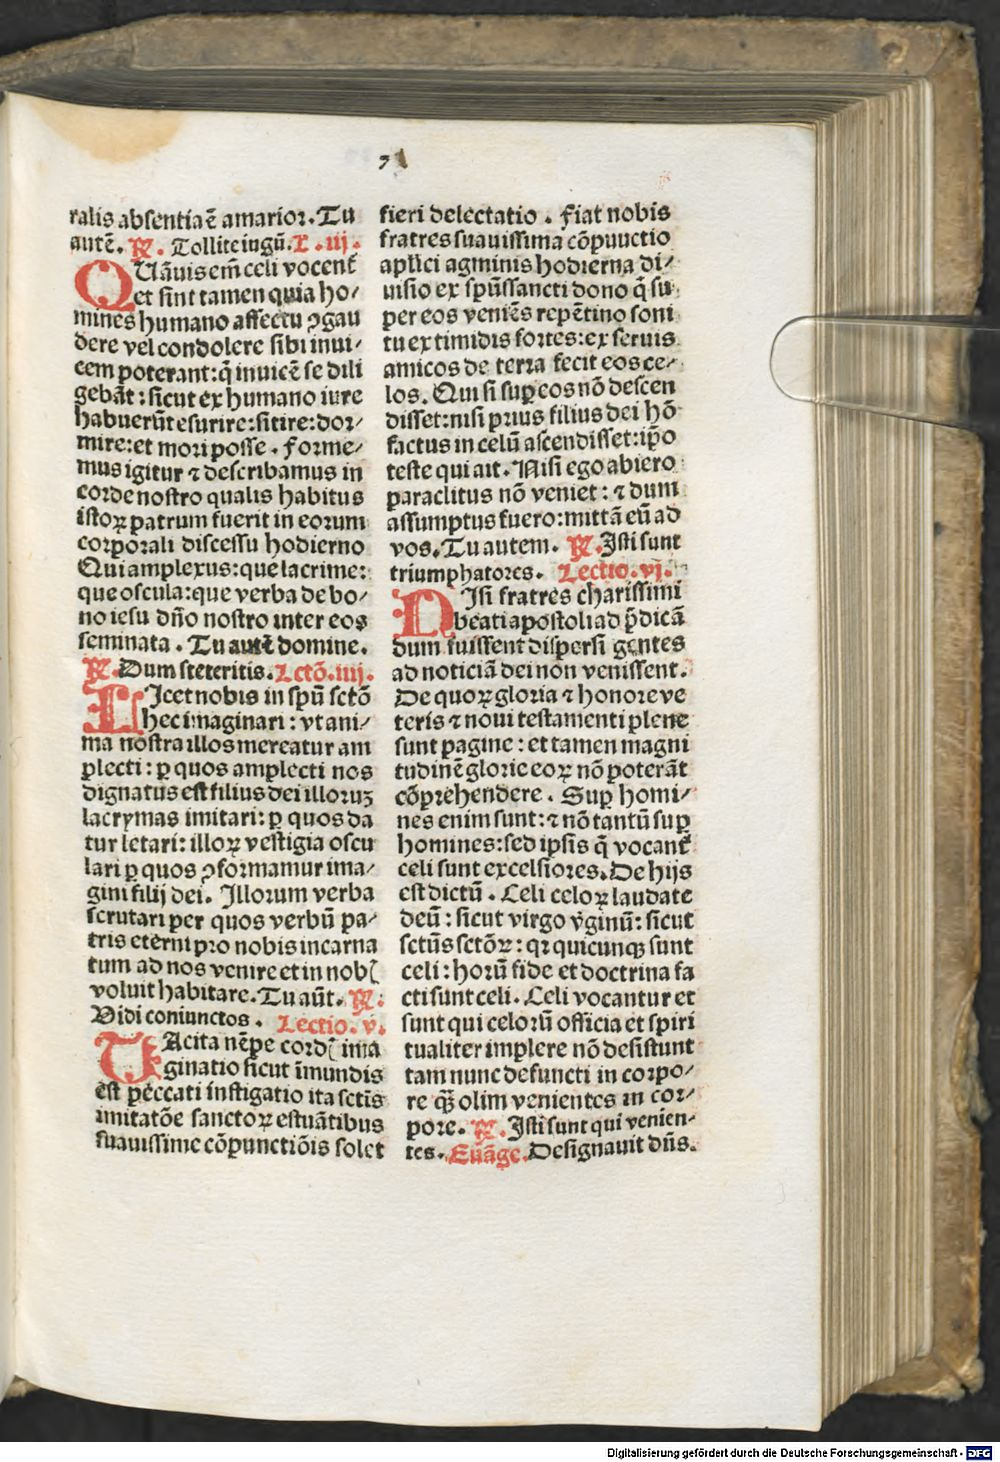 71
ralis absentia ē amarior. Tu
autē. ℟. Tollite iugū. L. iij.
QUāuis em̄ celi vocent̄
et sint tamen quia ho/
mines humano affectu ꝯgau
dere vel condolere sibi inui/
cem poterant: q̄ inuicē se dili
gebāt: sicut ex humano iure
habuerūt esurire: sitire: dor/
mire: et mori posse. Forme/
mus igitur ⁊ describamus in
corde nostro qualis habitus
istoꝝ patrum fuerit in eorum
corporali discessu hodierno
Qui amplexus: que lacrime:
que oscula: que verba de bo/
no iesu dn̄o nostro inter eos
seminata. Tu autē domine.
℟. Dum steteritis. Lctō. iiij.
LIcet nobis in spū sctō
hec imaginari: vt ani/
ma nostra illos mereatur am
plecti: ꝑ quos amplecti nos
dignatus est filius dei illoruꝫ
lacrymas imitari: ꝑ quos da
tur letari: illoꝝ vestigia oscu
lari ꝑ quos ꝯformamur ima/
gini filij dei. Illorum verba
scrutari per quos verbū pa/
tris eterni pro nobis incarna
tum ad nos venire et in nobꝭ
voluit habitare. Tu aūt. ℟.
Vidi coniunctos. Lectio. v.
TAcita nēpe cordꝭ ima
ginatio sicut īmundis
est peccati instigatio ita sctis
imitatōe sanctoꝝ estuātibus
suauissime cōpunctiōis solet
fieri delectatio. Fiat nobis
fratres suauissima cōpūuctio
apl̄ici agminis hodierna di/
uisio ex spūssancti dono q̄ su
per eos veniēs repētino soni
tu ex timidis fortes: ex seruis
amicos de terra fecit eos ce/
los. Qui si suꝑ eos nō descen
disset: nisi prius filius dei hō
factus in celū ascendisset: ip̄o
teste qui ait. Nisi ego abiero
paraclitus nō veniet: ⁊ dum
assumptus fuero: mittā eū ad
vos. Tu autem. ℟. Isti sunt
triumphatores. Lectio. vj.
NIsi fratres charissimi
beati apostoli ad p̄dicā
dum fuissent dispersi gentes
ad noticiā dei non venissent.
De quoꝝ gloria ⁊ honore ve
teris ⁊ noui testamenti plene
sunt pagine: et tamen magni
tudinē glorie eoꝝ nō poterāt
cōprehendere. Suꝑ homi/
nes enim sunt: ⁊ nō tantū suꝑ
homines: sed ipsis q̄ vocant̄
celi sunt excelsiores. De hijs
est dictū. Celi celoꝝ laudate
deū: sicut virgo v̄ginū: sicut
sctūs sctōꝝ: qꝛ quicunqꝫ sunt
celi: horū fide et doctrina fa
cti sunt celi. Celi vocantur et
sunt qui celorū officia et spiri
tualiter implere nō desistunt
tam nunc defuncti in corpo/
re qꝫ̄ olim venientes in cor/
pore. ℟. Isti sunt qui venien-
tes. Euāge. Designauit dn̄s.
Digitalisierung gefördert durch die Deutsche Forschungsgemeinschaft - DFG